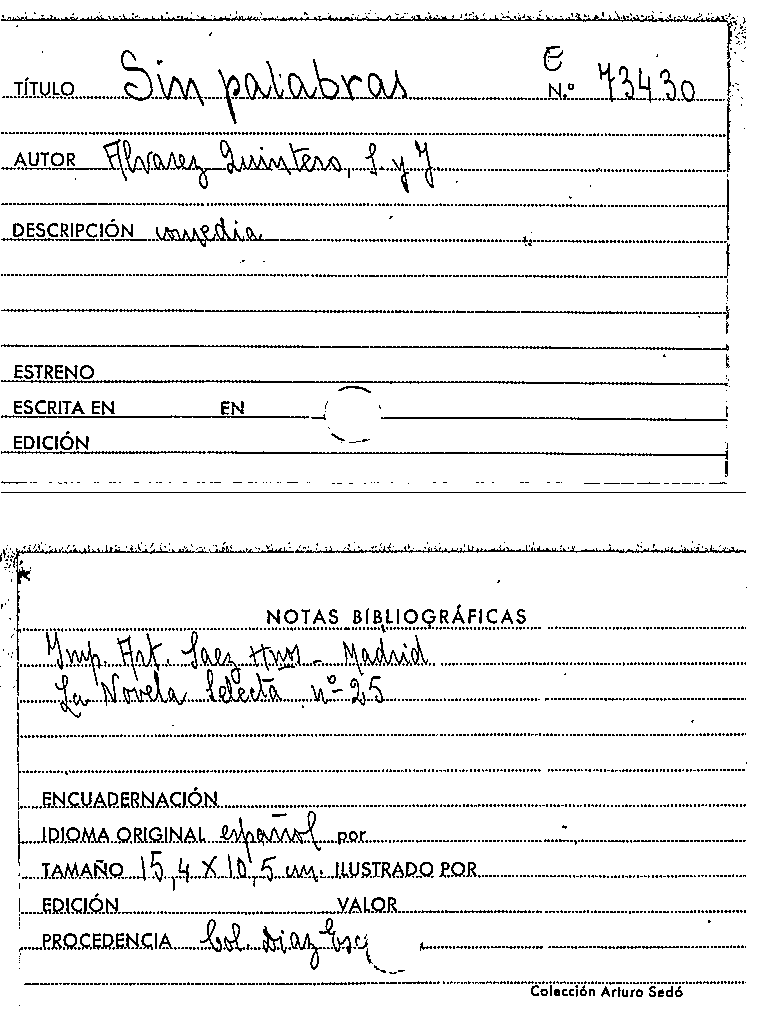 TÍTULO Sin palabras E N.º 73430
AUTOR Alvarez Quintero, S. y J
DESCRIPCIÓN comedia
ESTRENO
ESCRITA EN EN
EDICIÓN
NOTAS BIBLIOGRÁFICAS
Imp. Art. Saez Hnos - Madrid
La Novela Selecta nº 25
ENCUADERNACIÓN
IDIOMA ORIGINAL español por
TAMAÑO 15,4 X 10,5 cm. ILUSTRADO POR
EDICIÓN VALOR
PROCEDENCIA Col. Diaz Esc
Colección Arturo Sedó